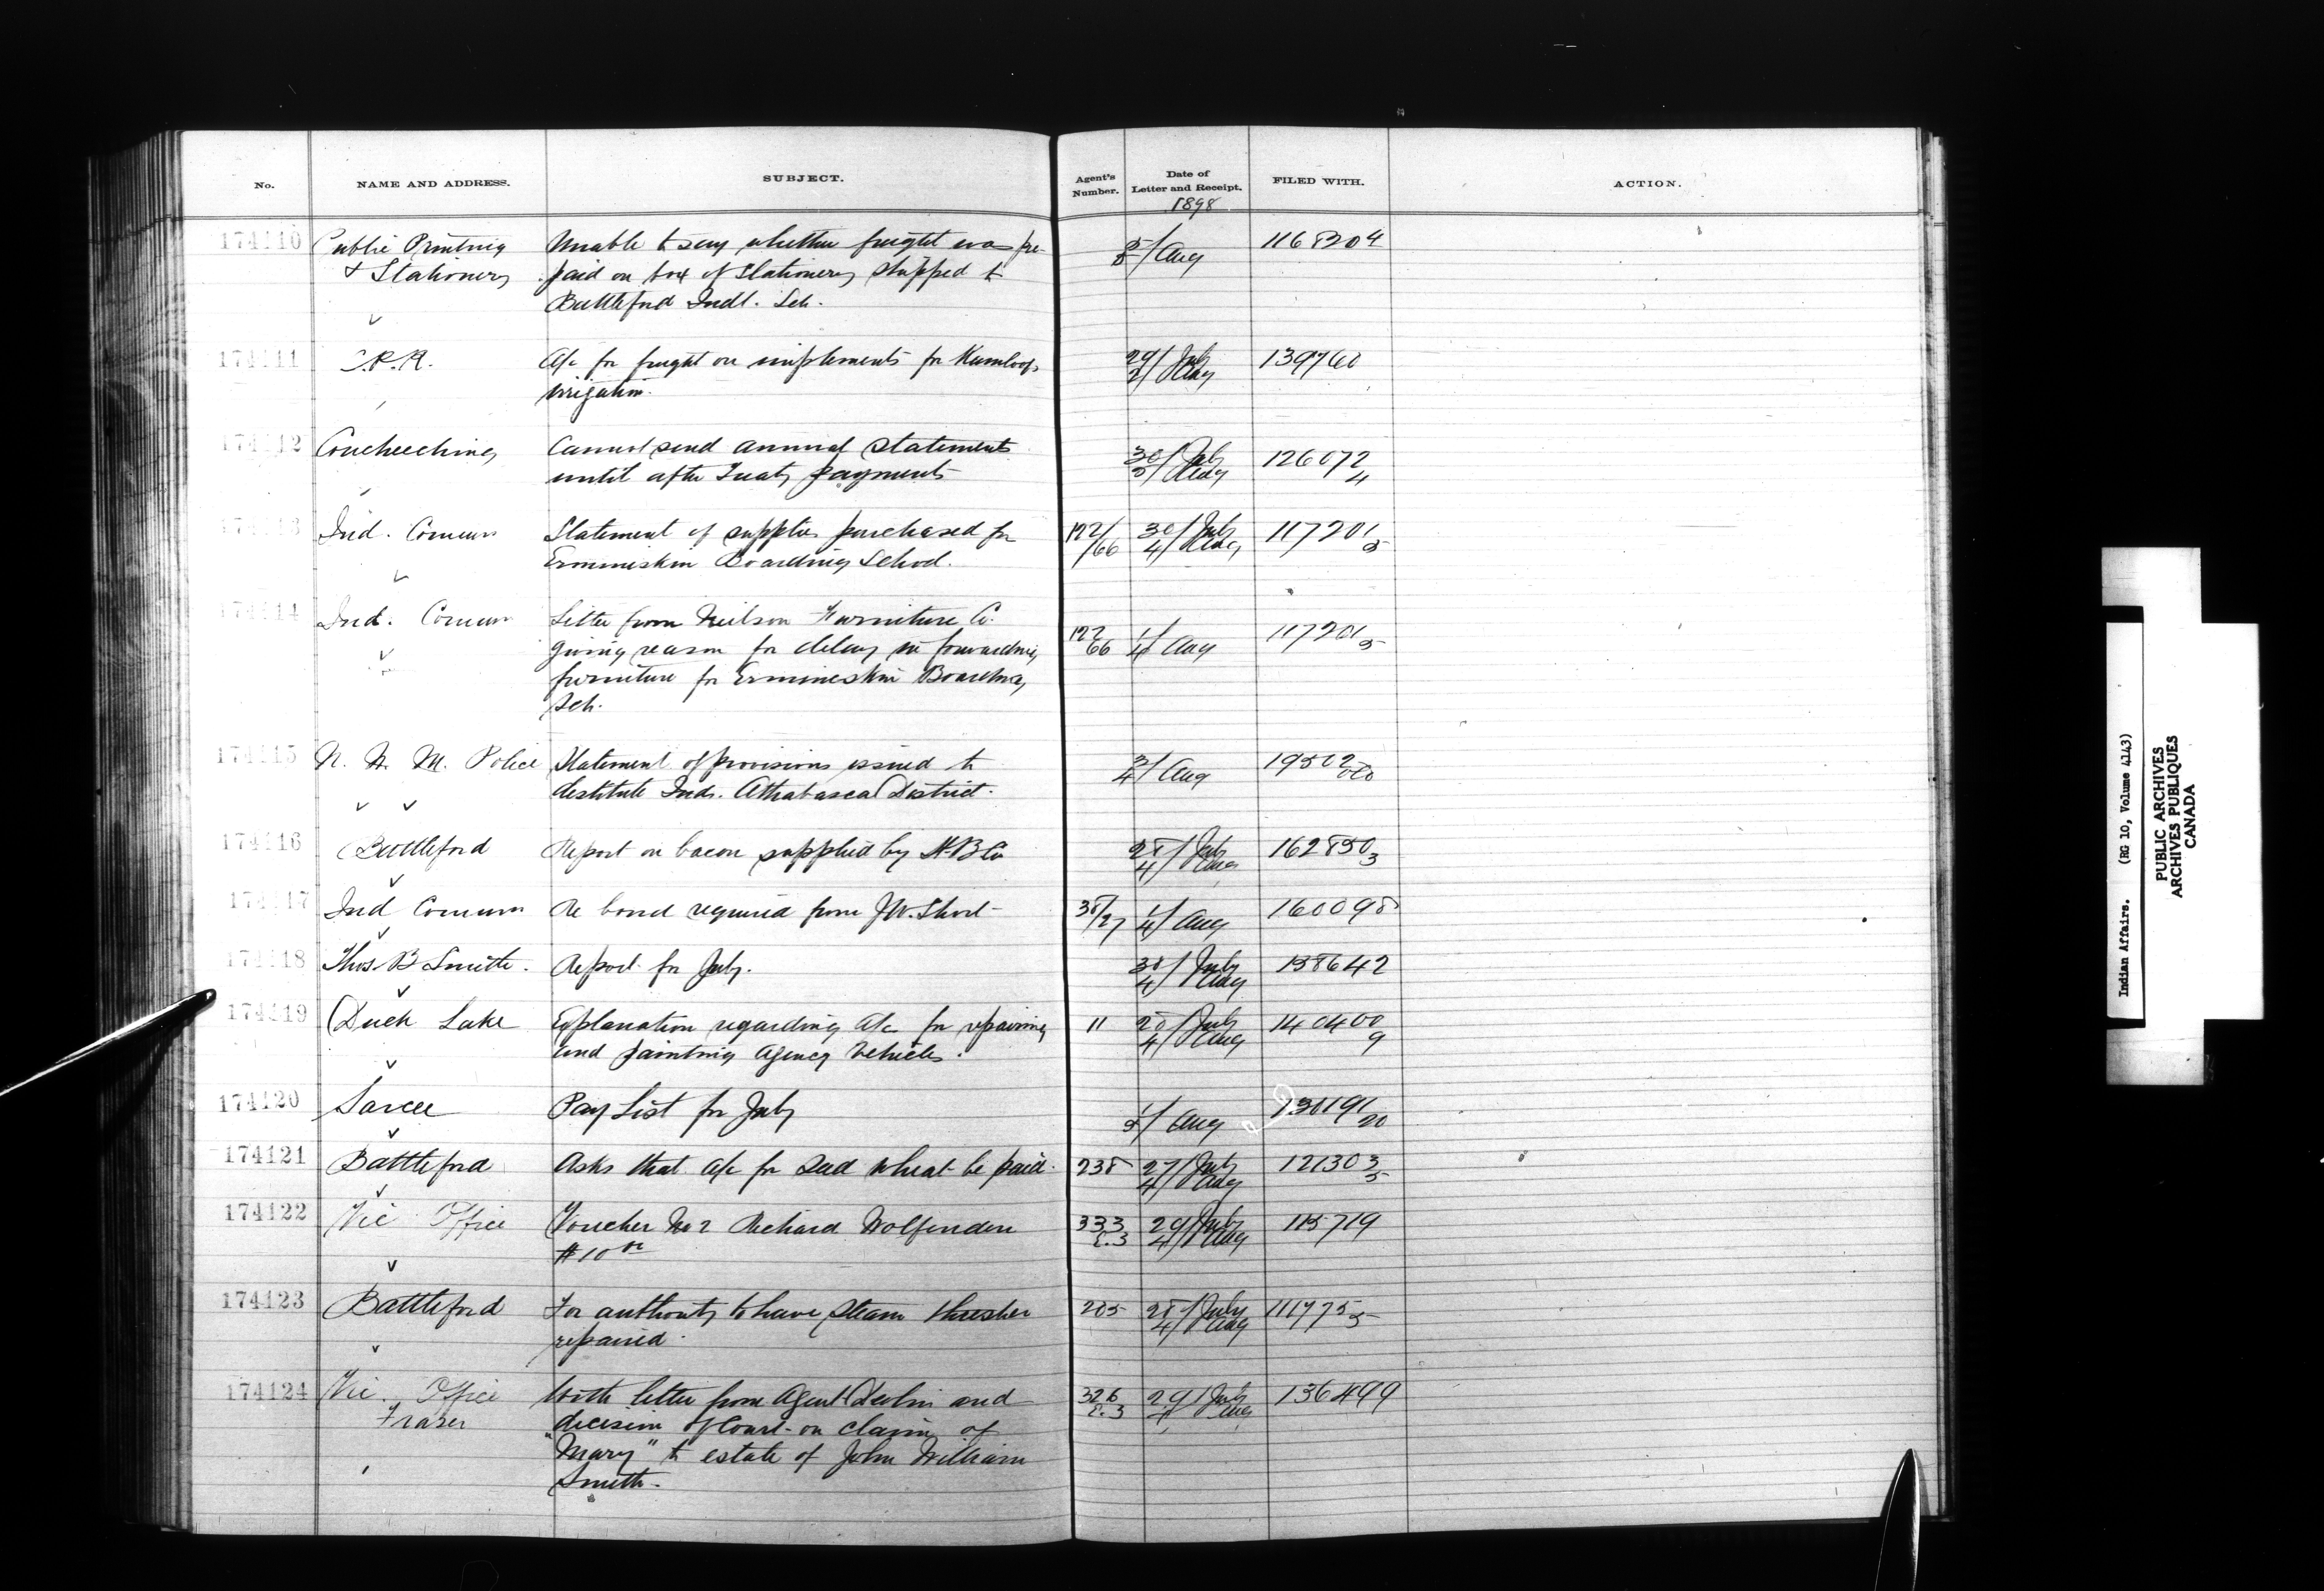 No. NAME AND ADDRESS. SUBJECT. Agent's Number. Date of Letter and Receipt. FILED WITH. ACTION.
1898
174110 Public Printing Unable to say whether freight was pre- 5/ Aug 116820 4
& Stationery paid on box of Stationery shipped to
Battleford Indl. Sch.
174111 C.P.R. A/c for freight on implements for Kamloops 29/ July 139760
irrigation. 2/ Aug
174112 Coucheeching Cannot send annual statements 30/ July 126072
until after Treaty payments 5/ Aug 4
174113 Ind. Commr Statement of supplies purchased for 122/ 30/ July 117201
Ermineskin Boarding School. /66 4/ Aug 5
174114 Ind. Commr Letter from Neilson Furniture Co.
giving reason for delay in forwarding 122 66 1/4 Aug 117201 5
furniture for Ermineskin Boarding
Sch.
174115 N. W. M. Police Statement of provisions issued to 3/4 Aug 19502
destitute Inds. Athabasca District.
174116 Battleford Report on bacon supplied by H B Co 28/ July 162850 3
4/ Aug
174117 Ind Commr Re bond required from J.W. Short 38/27 1/4 Aug 160098
174118 Thos. B Smith. Report for July. 30/ July 138642
4/ Aug
174119 Duck Lake Explanation regarding A/c for repairing 11 20/ July 140400
and painting Agency Vehicles. 4/ Aug 9
174120 Sarcee Pay List for July 1/5 Aug 130191 20
174121 Battleford Asks that a/c for Seed wheat be paid. 238 27/ July 121303
4/ Aug 5
174122 Vic Office Voucher No 2 Richard Wolfenden 333 29/ July 115719
$10 00 E.3 4/ Aug
174123 Battleford For authority to have Steam thresher 205 28/ July 111775 5
repaired. 4/ Aug
174124 Vic. Office With letter from Agent Devlin and 326 29/ July 136499
Fraser decision of Court on claim of E.3 4/ Aug
"Mary" to estate of John William
Smith.
Indian Affairs. (RG 10, Volume 4143)
PUBLIC ARCHIVES
ARCHIVES PUBLIQUES
CANADA